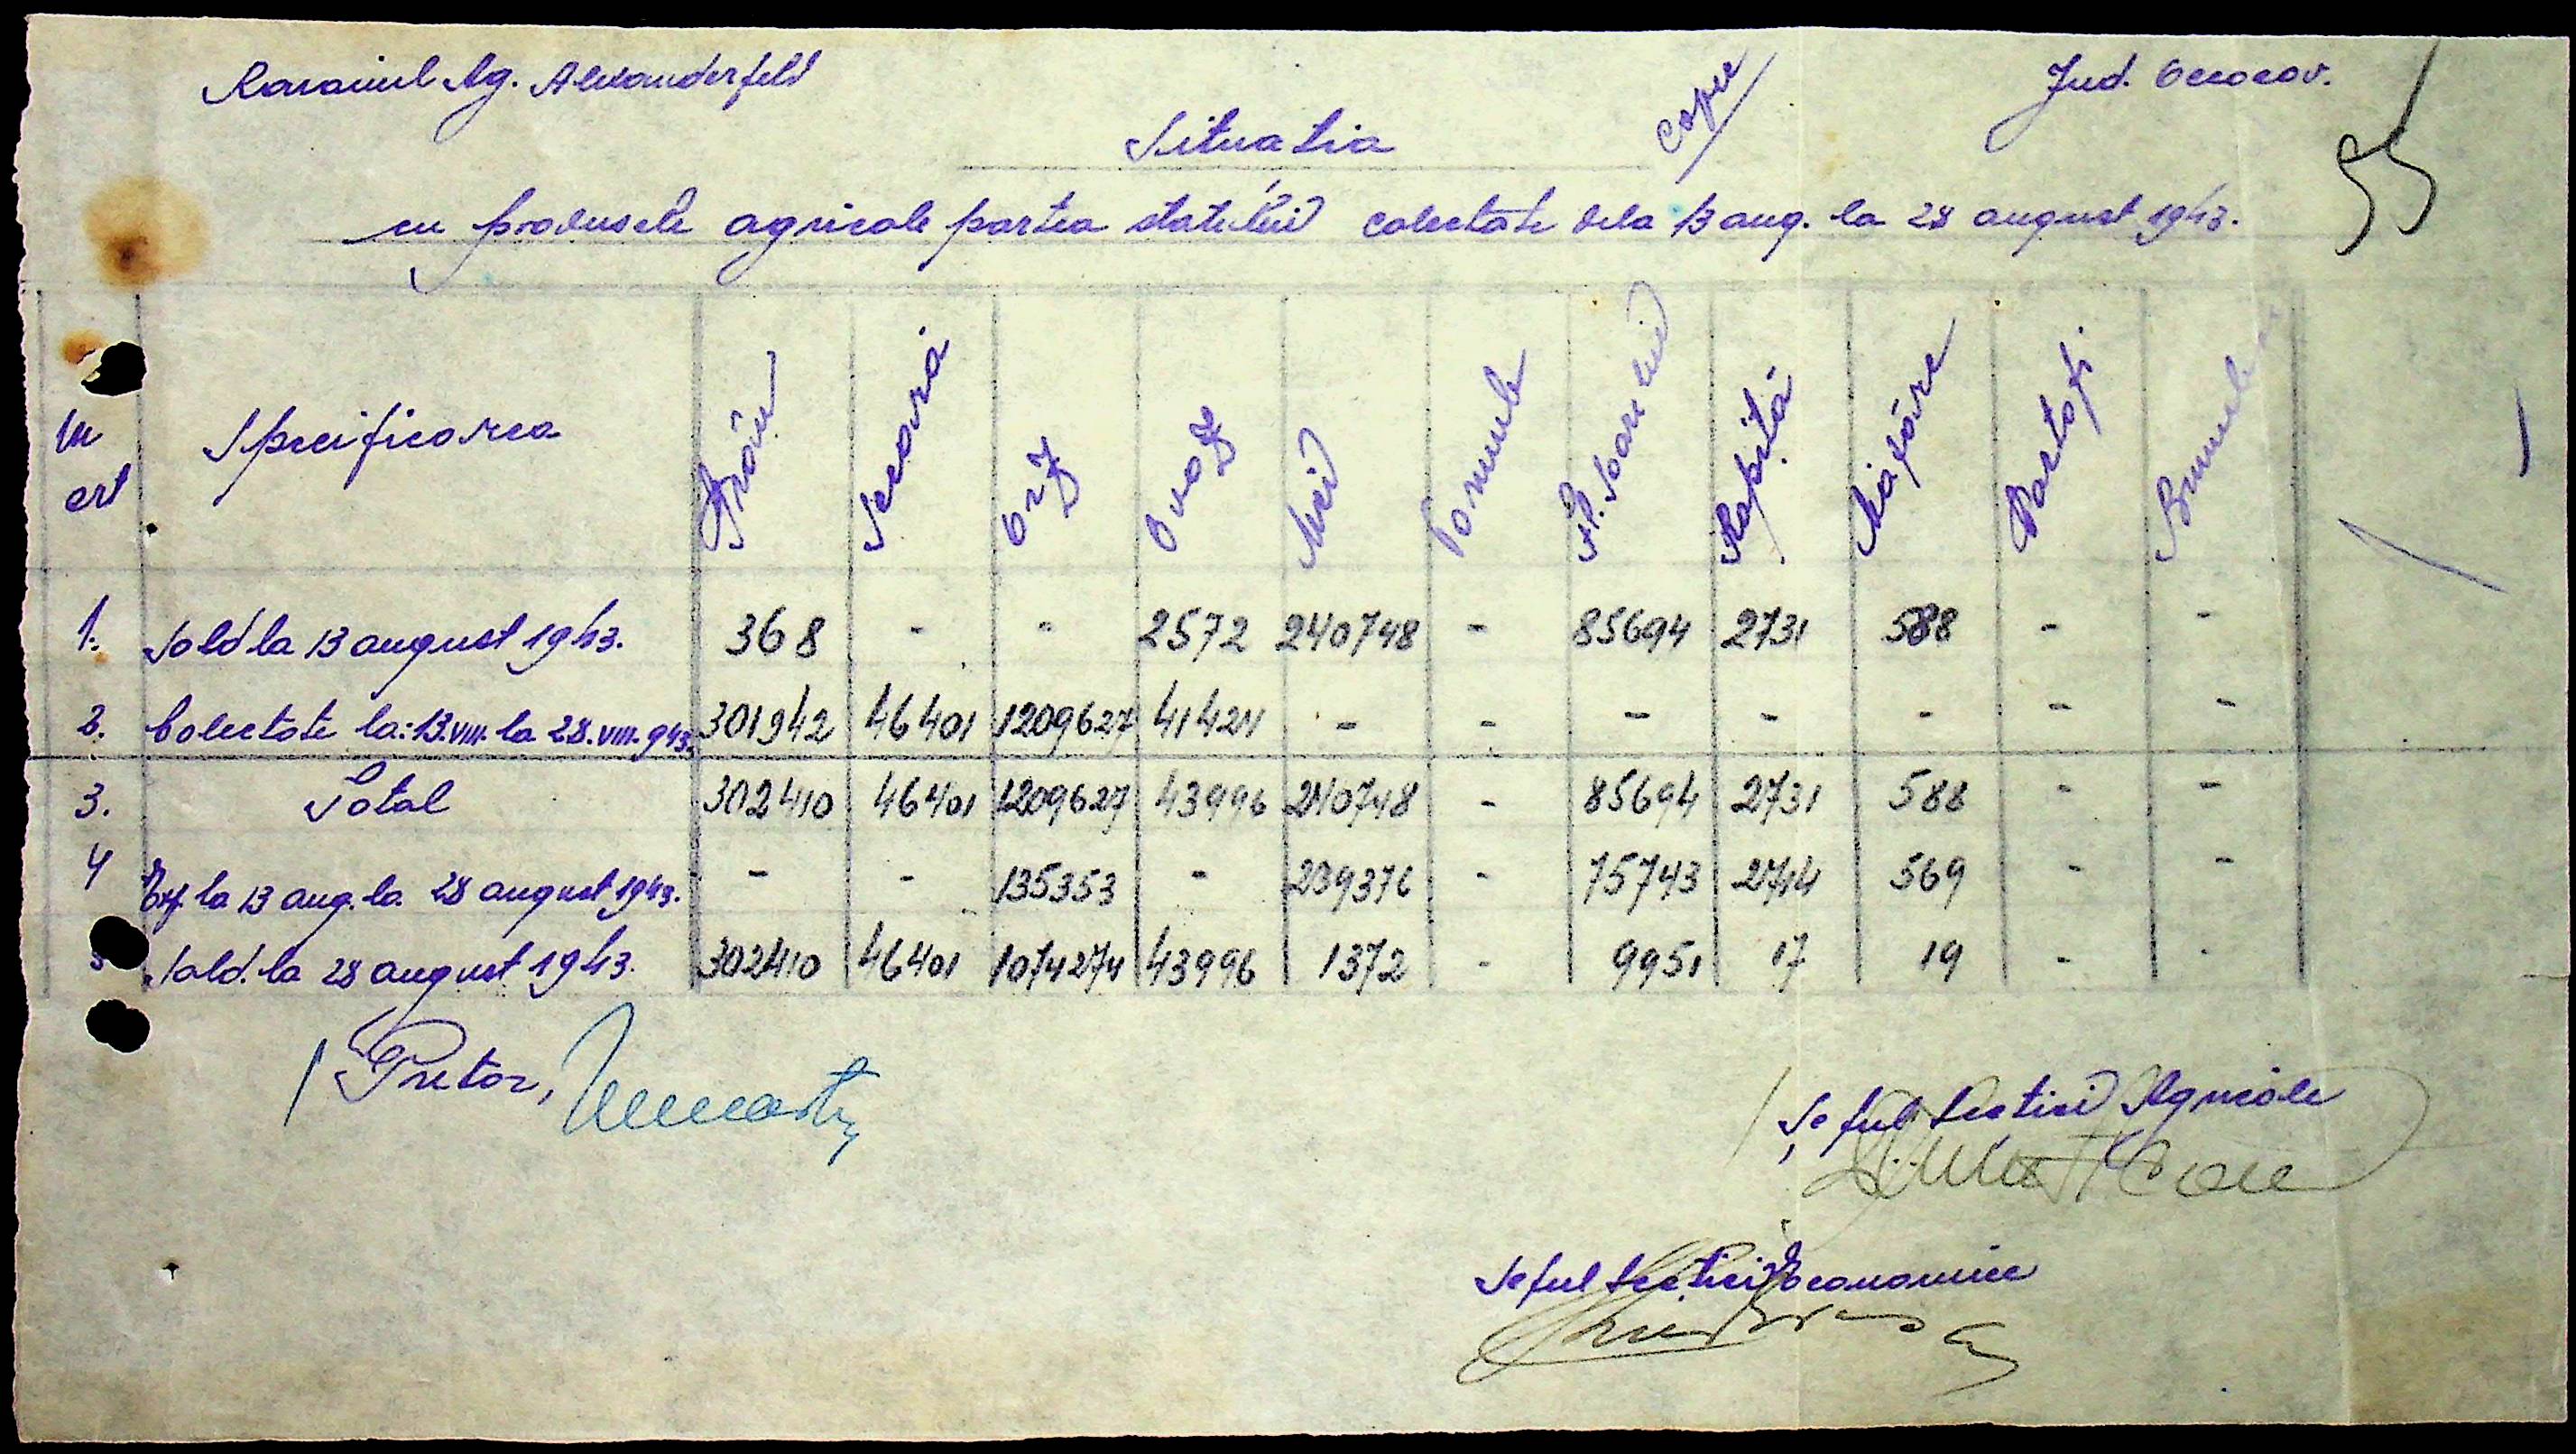 Raionul Ag. Alexanderfeld
Jud. Oceacov.
copie
Situatia
55
cu produsele agricole partea statului colectate dela 13 aug. la 28 august 1943.
Nr crt Specificarea Grâu Secară Orz Ovăz Mei Porumb Fl. Soarelui Rapiță Mazăre Cartofi
1. Sold la 13 august 1943. 368 - - 2572 240748 - 85694 2731 588 - -
2. Colectate la: 13.VIII. la 28.VIII.943. 301942 46401 1209627 41424 - - - - - - -
3. Total 302410 46401 1209627 43996 240748 - 85694 2731 588 - -
4 la 13 aug. la 28 august 1943. - - 135353 - 239376 - 75743 2714 569 - -
5 Sold. la 28 august 1943. 302410 46401 1074274 43996 1372 - 9951 17 19 - -
Pretor,
Șeful Secției Agricole
Seful Secției Economice